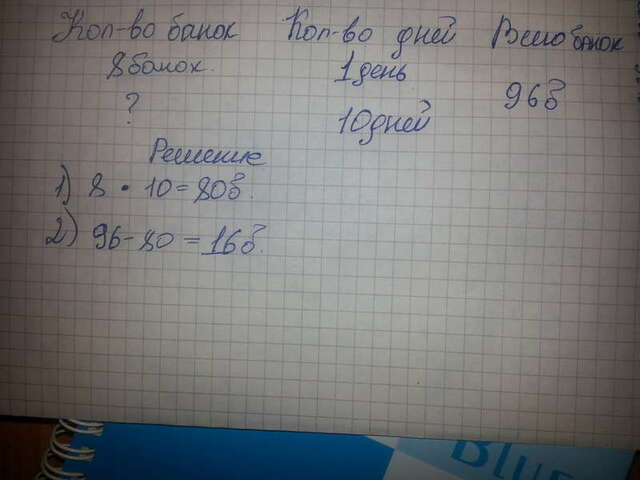 Кол-во банок Кол-во дней Всего банок
8 банок. 1 день
96б
? 10 дней
Решение
1) 8 · 10 = 80б.
2) 96 - 80 = 16б.
Blu